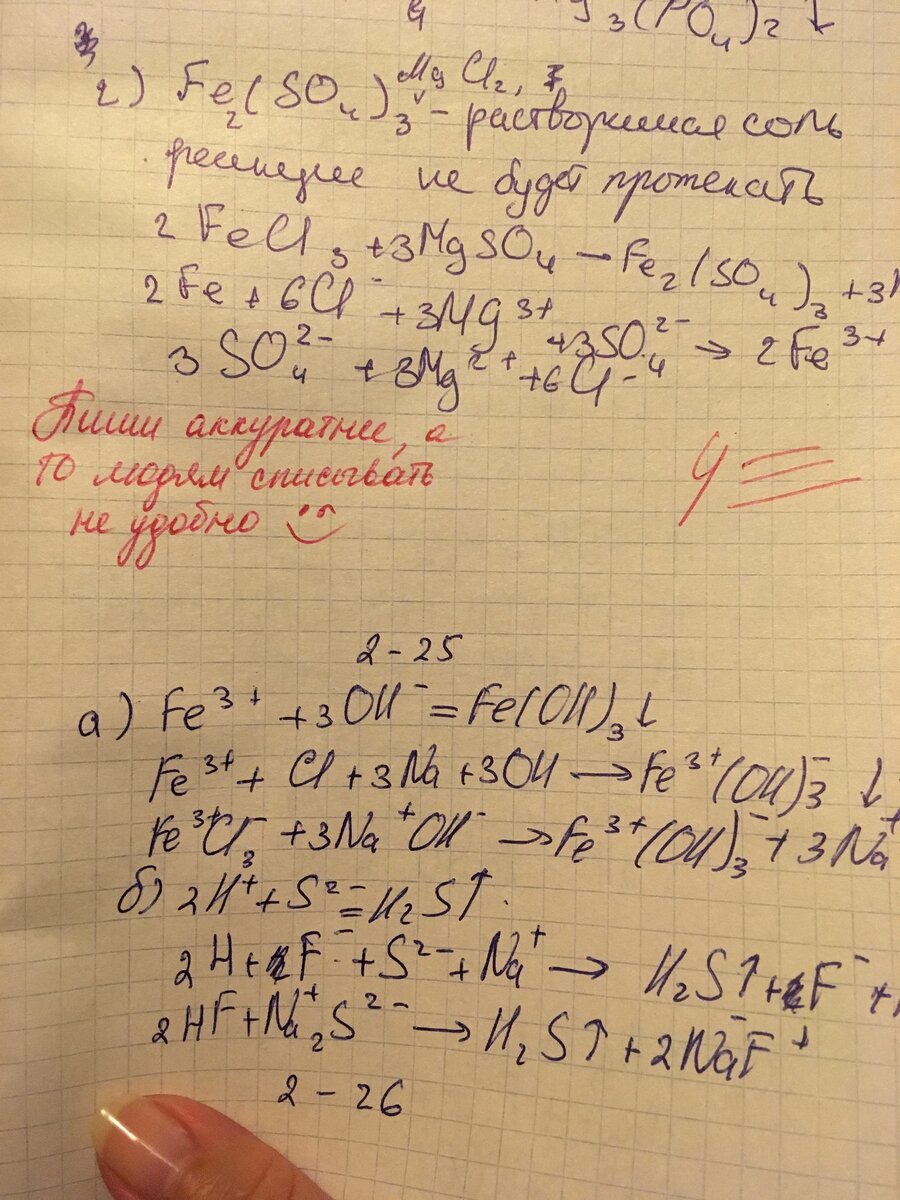 ₃(PO₄)₂ ↓
г) Fe₂(SO₄)₃ MgCl₂, – растворимая соль
реакция не будет протекать
2FeCl₃ + 3MgSO₄ – Fe₂(SO₄)₃ + 3
2Fe + 6Cl⁻ + 3Mg³⁺ + 3SO₄²⁻ → 2Fe³⁺
3SO₄²⁻ + 3Mg²⁺ + 6Cl⁻
Пиши аккуратнее, а
то людям списывать
не удобно
4
2 – 25
а) Fe³⁺ + 3OH⁻ = Fe(OH)₃↓
Fe³⁺ + Cl + 3Na + 3OH → Fe³⁺(OH)₃⁻ ↓
Fe³⁺Cl₃⁻ + 3Na⁺OH⁻ → Fe³⁺(OH)₃⁻ + 3Na⁺
б) 2H⁺ + S²⁻ = H₂S↑
2H + F⁻ + S²⁻ + Na⁺ → H₂S↑ + F⁻ +
2HF + Na⁺₂S²⁻ → H₂S↑ + 2Na⁻F⁺
2 – 26